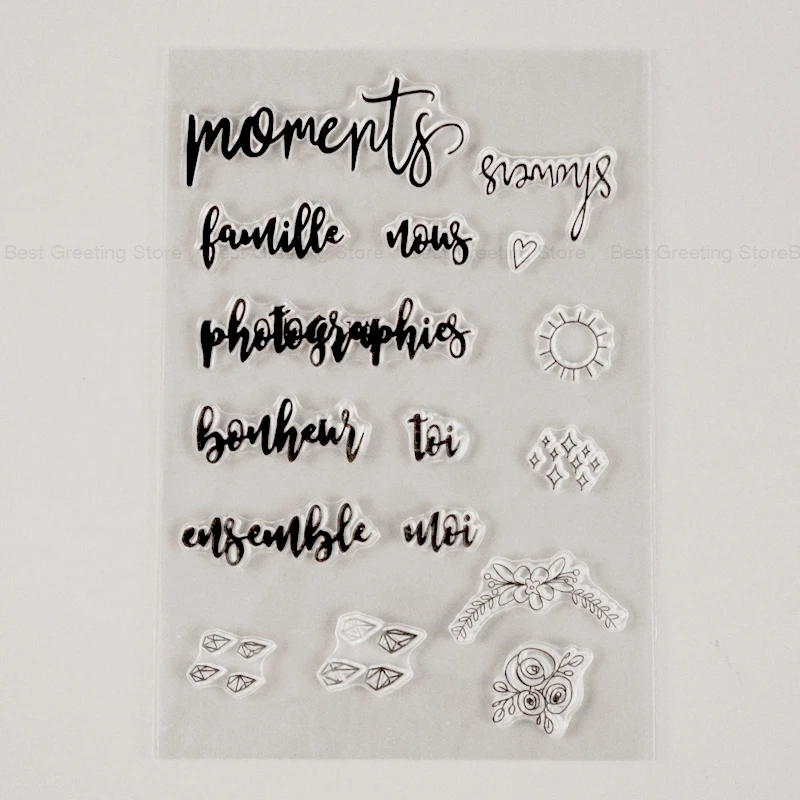 moments
famille nous
Best Greeting Store Best Greeting Store Best Greeting StoreB
photographies
bonheur toi
ensemble moi